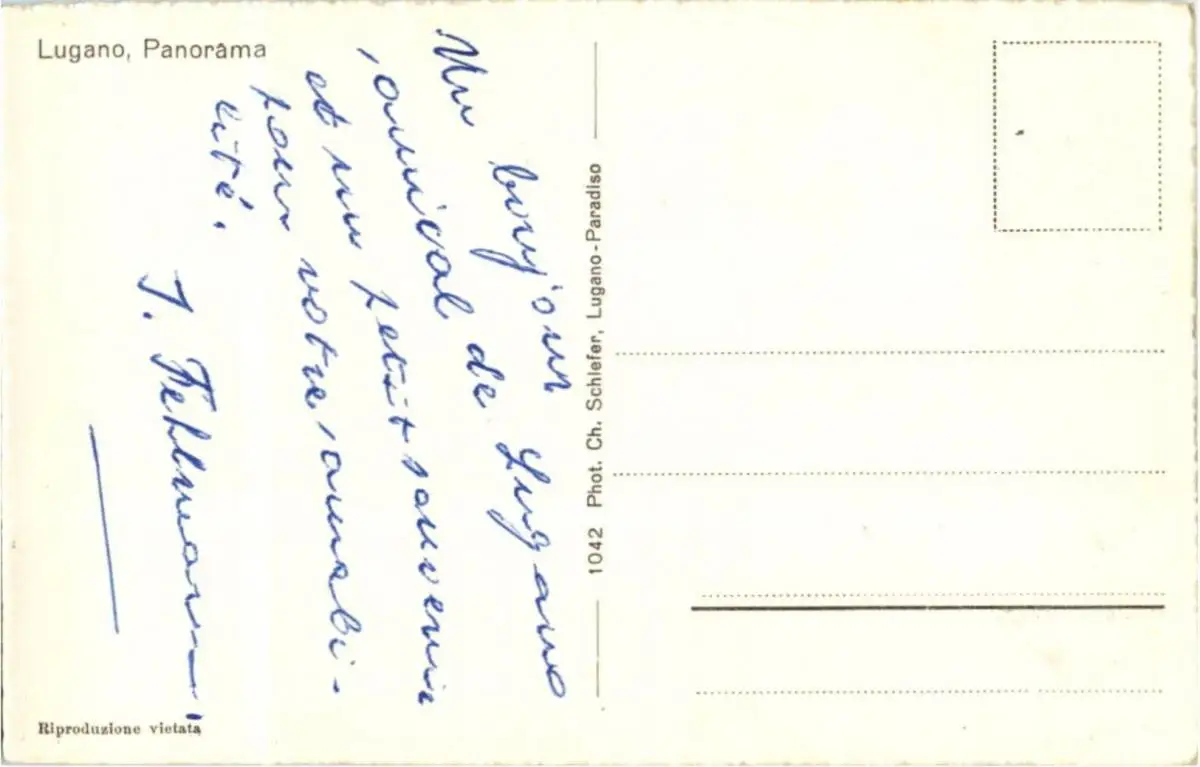 Lugano, Panorama
Un bonjour
amical de Lugano
et un petit souvenir
pour votre amabi-
lité.
J. Fehlmann
1042 Phot. Ch. Schiefer, Lugano-Paradiso
Riproduzione vietata